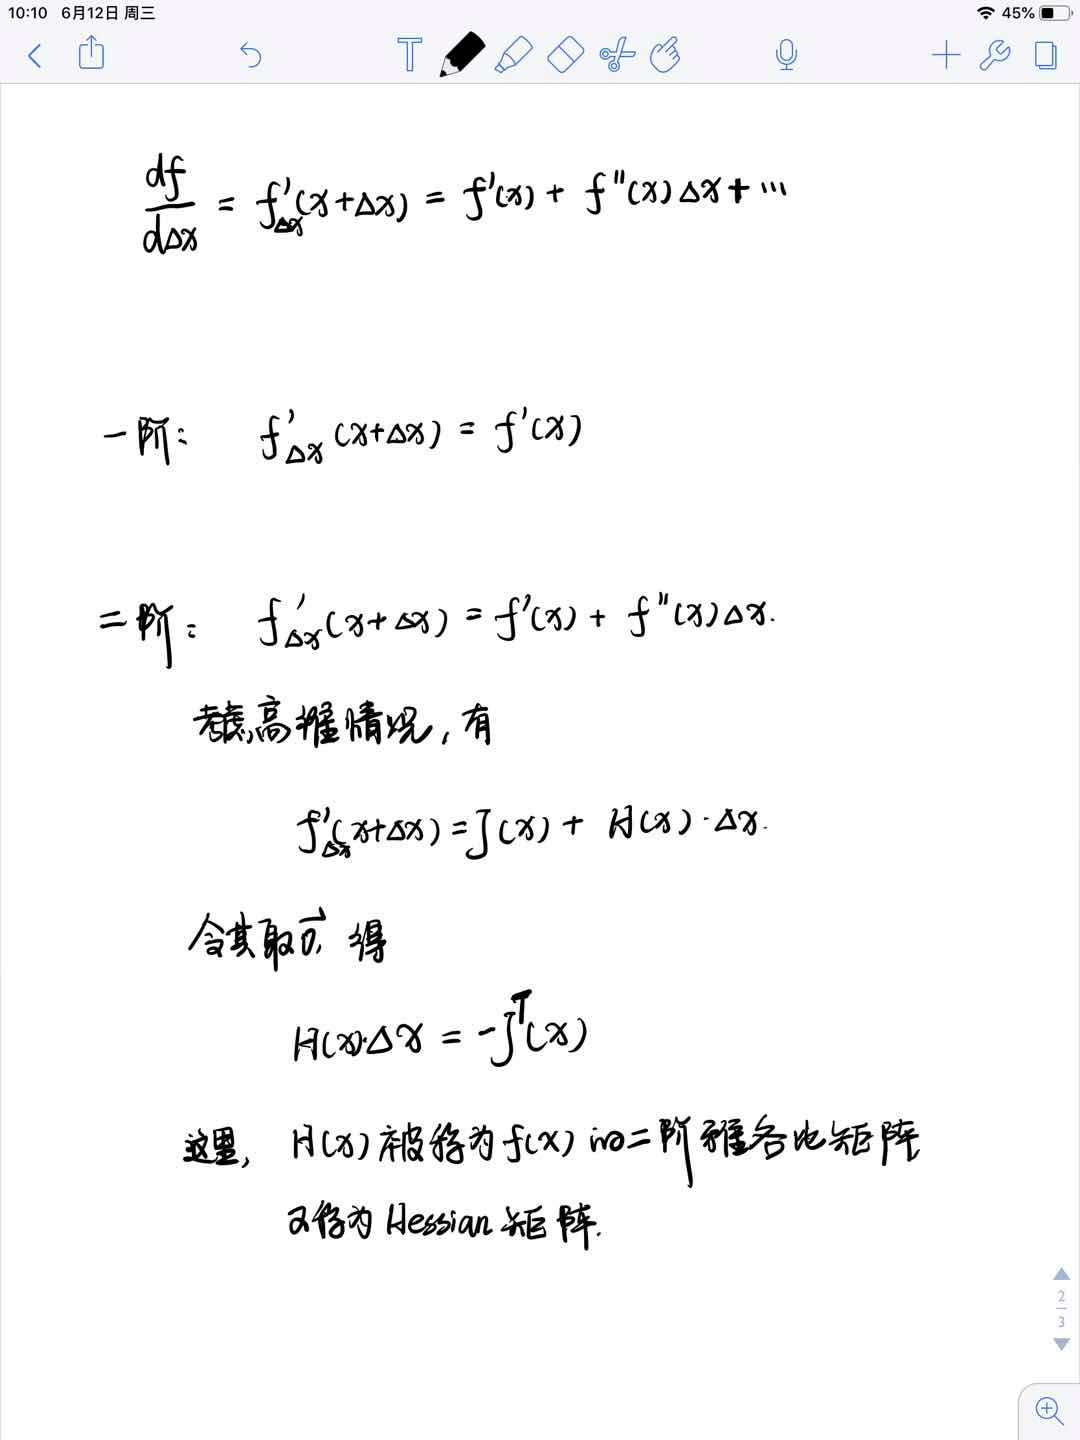 10:10 6月12日 周三 45%
df/dΔx = f'Δx(x+Δx) = f'(x) + f''(x)Δx+⋯
一阶: f'Δx(x+Δx) = f'(x)
二阶: f'Δx(x+Δx) = f'(x) + f''(x)Δx.
考虑高维情况,有
f'Δx(x+Δx) = J(x) + H(x)·Δx.
令其取0⃗, 得
H(x)·Δx = -Jᵀ(x)
这里, H(x)被称为f(x)的二阶雅各比矩阵
又称为Hessian矩阵.
2
3